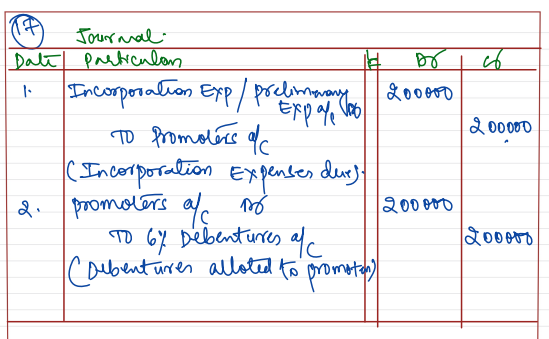 17
Journal.
Date Particulars Dr Cr
1. Incorporation Exp / preliminary 200000
Exp a/c Dr
To Promoters a/c 200000
(Incorporation Expenses due).
2. promoters a/c Dr 200000
To 6% Debentures a/c 200000
(Debentures alloted to promoters)